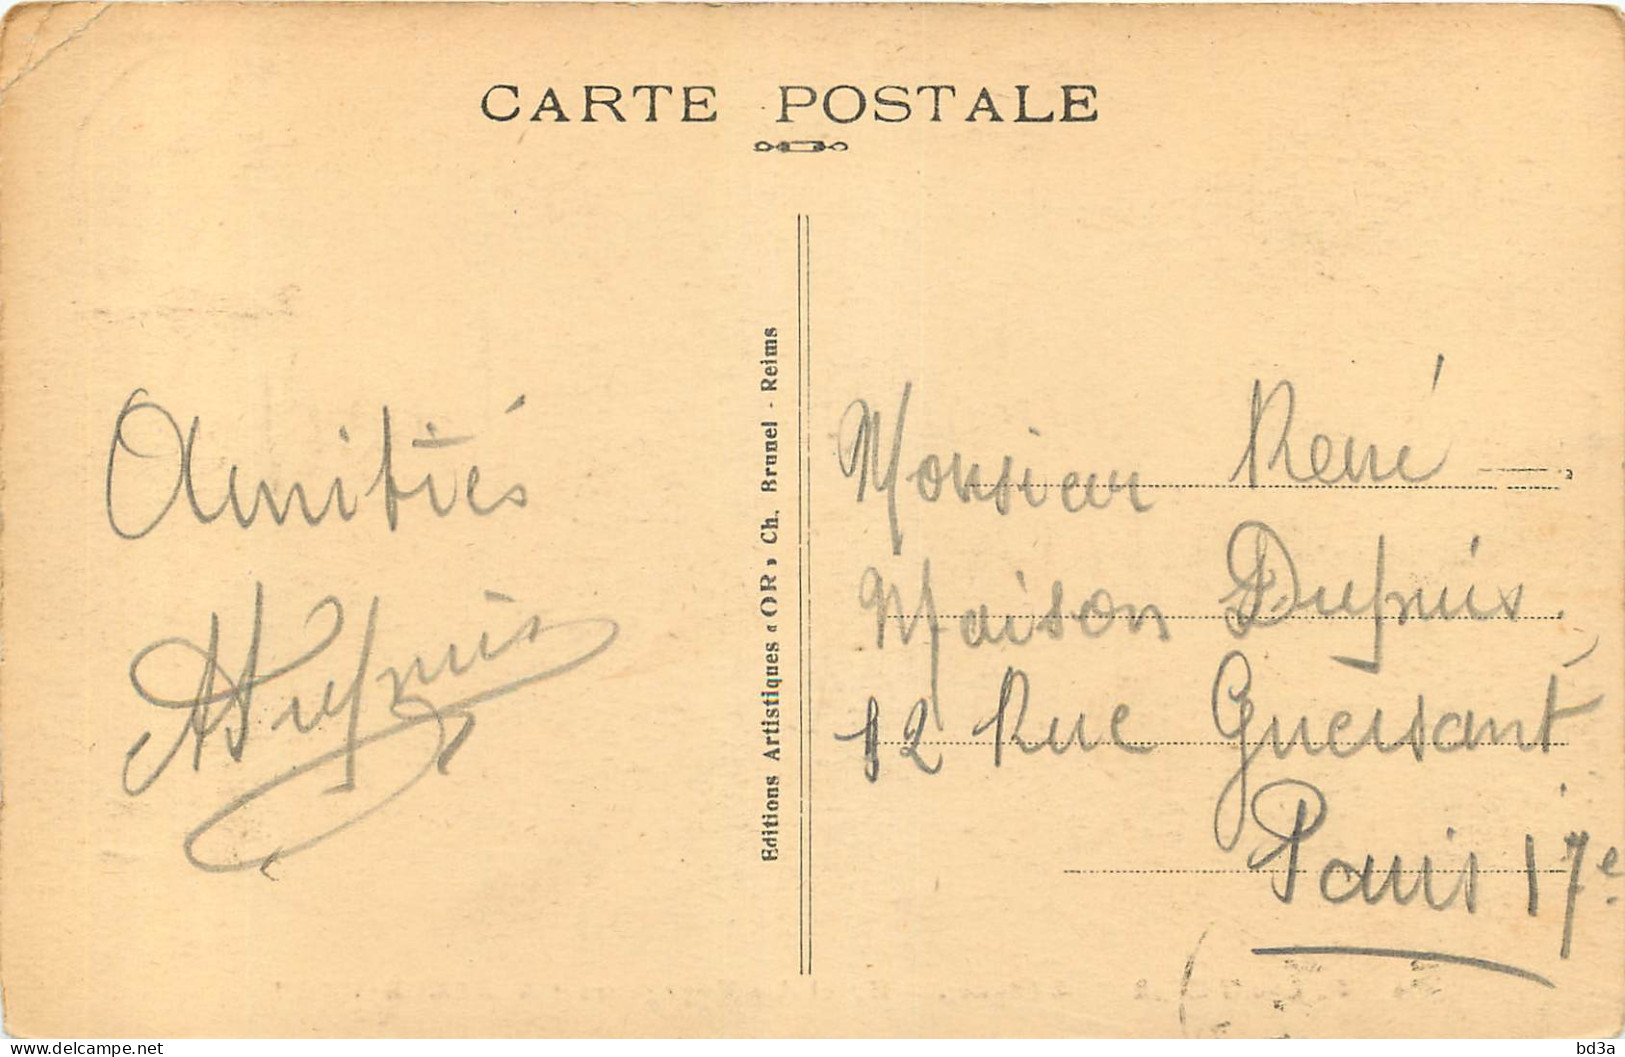 CARTE POSTALE
Amitiés
Dupuis
Editions Artistiques « OR » Ch. Brunel - Reims
Monsieur René
Maison Dupuis
12 Rue Guersant
Paris 17e
bd3a